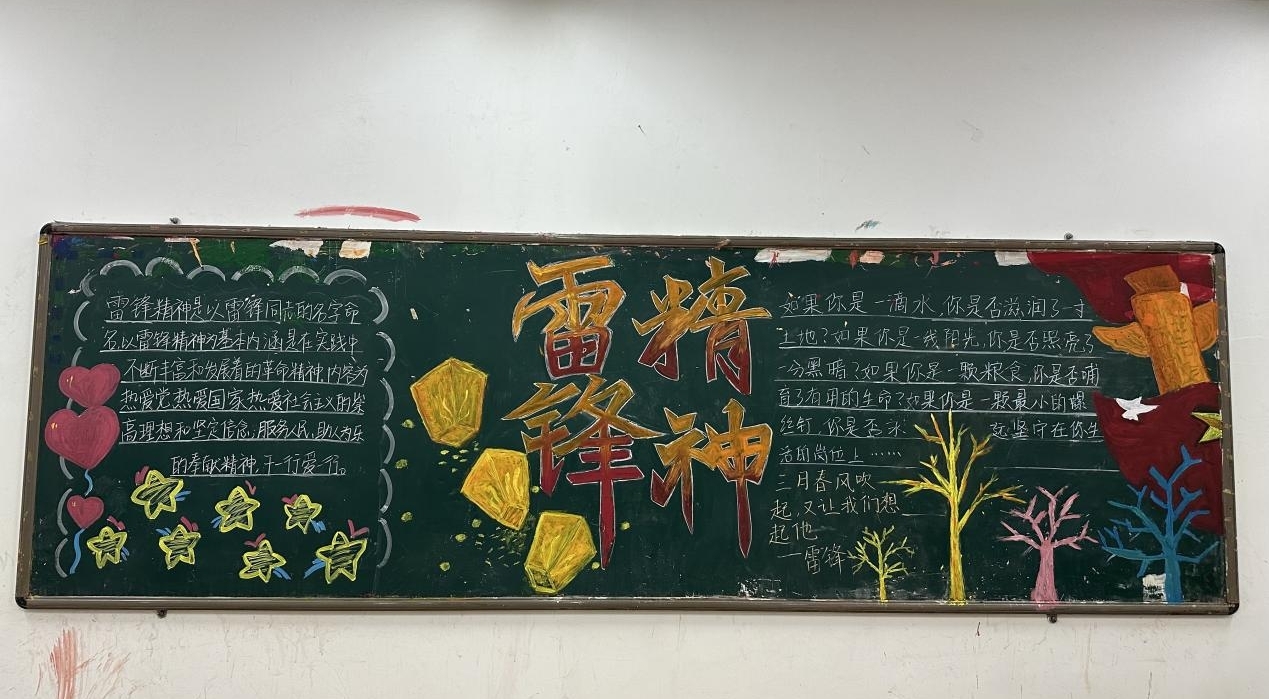 雷锋精神是以雷锋同志的名字命
名,以雷锋精神为基本内涵是在实践中
不断丰富和发展着的革命精神,内容为
热爱党热爱国家热爱社会主义的崇
高理想和坚定信念,服务人民,助人为乐
的奉献精神,干一行爱一行。
雷锋
精神
如果你是一滴水,你是否滋润了一寸
土地?如果你是一线阳光,你是否照亮了
一分黑暗?如果你是一颗粮食,你是否哺
育了有用的生命?如果你是一颗最小的螺
丝钉,你是否永 坚守在你生
活的岗位上……
三月春风吹
起,又让我们想
起他
—雷锋